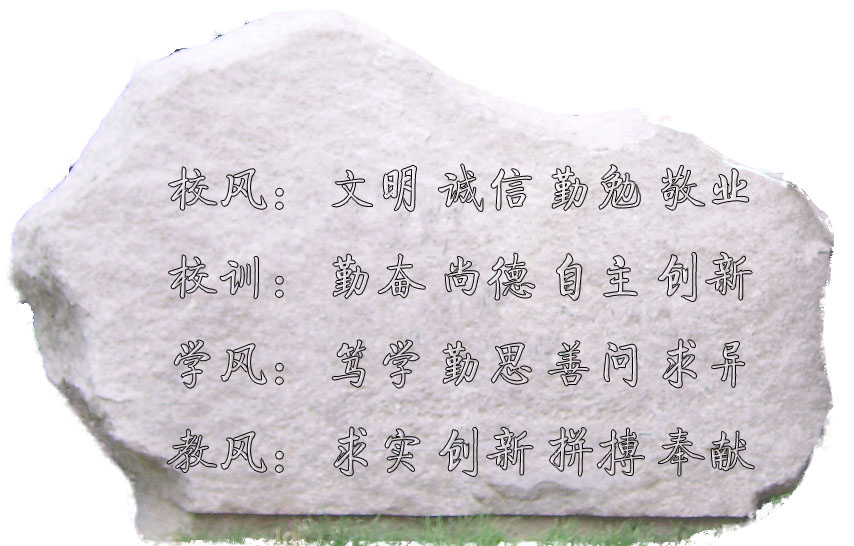 校风： 文明 诚信 勤勉 敬业
校训： 勤奋 尚德 自主 创新
学风： 笃学 勤思 善问 求异
教风： 求实 创新 拼搏 奉献